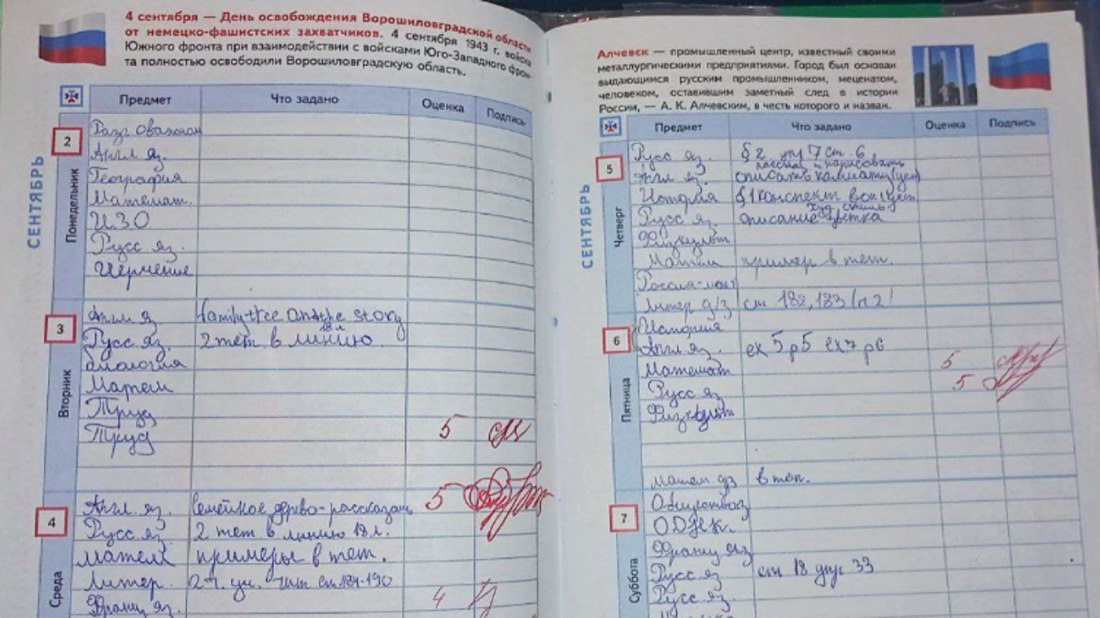 4 сентября — День освобождения Ворошиловградской области
от немецко-фашистских захватчиков. 4 сентября 1943 г. войска
Южного фронта при взаимодействии с войсками Юго-Западного фрон-
та полностью освободили Ворошиловградскую область.
Предмет Что задано Оценка Подпись
СЕНТЯБРЬ
2
Понедельник
Разг о важном
Англ яз.
География
Математ.
ИЗО
Русс яз.
Черчение
3
Вторник
Англ яз family tree story
Русс яз. 2 тет. в линию 18 л
биология
Матем
Труд
Труд 5
4
Среда
Англ. яз. семейное дерево-рассказать 5
Русс яз. 2 тет в линию 18 л.
матем примеры в тет.
Литер. 2 ч. уч. чит ст. 184-190
Франц яз. 4
Алчевск — промышленный центр, известный своими
металлургическими предприятиями. Город был основан
выдающимся русским промышленником, меценатом,
человеком, оставившим заметный след в истории
России, — А. К. Алчевским, в честь которого и назван.
Предмет Что задано Оценка Подпись
СЕНТЯБРЬ
5
Четверг
Русс яз. § 2 упр 7 ст. 6
Англ яз. описать комнату
и нарисовать
История § 1 конспект
Русс яз. описание цветка
Физкульт
Матем пример в тет.
Россия-мои
Литер д/з ст 182, 183
6
Пятница
История
Англ яз. ex 5 p5 ex 7 p6
Математ 5
Русс яз 5
Физкульт
матем дз в тет.
7
Суббота
Обществоз
ОДНК.
Франц яз
Русс яз ст 18 упр 33
Русс яз.